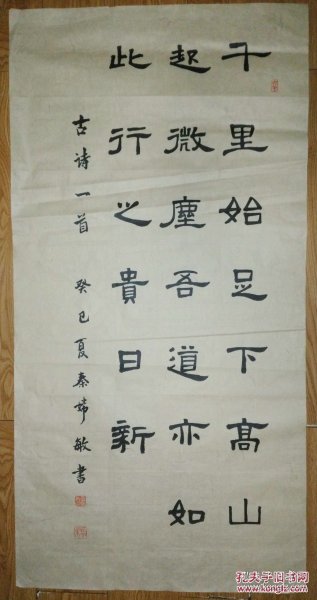 千里始足下高山
起微塵吾道亦如
此行之貴日新
古诗一首 癸巳夏秦敏書
孔夫子旧书网